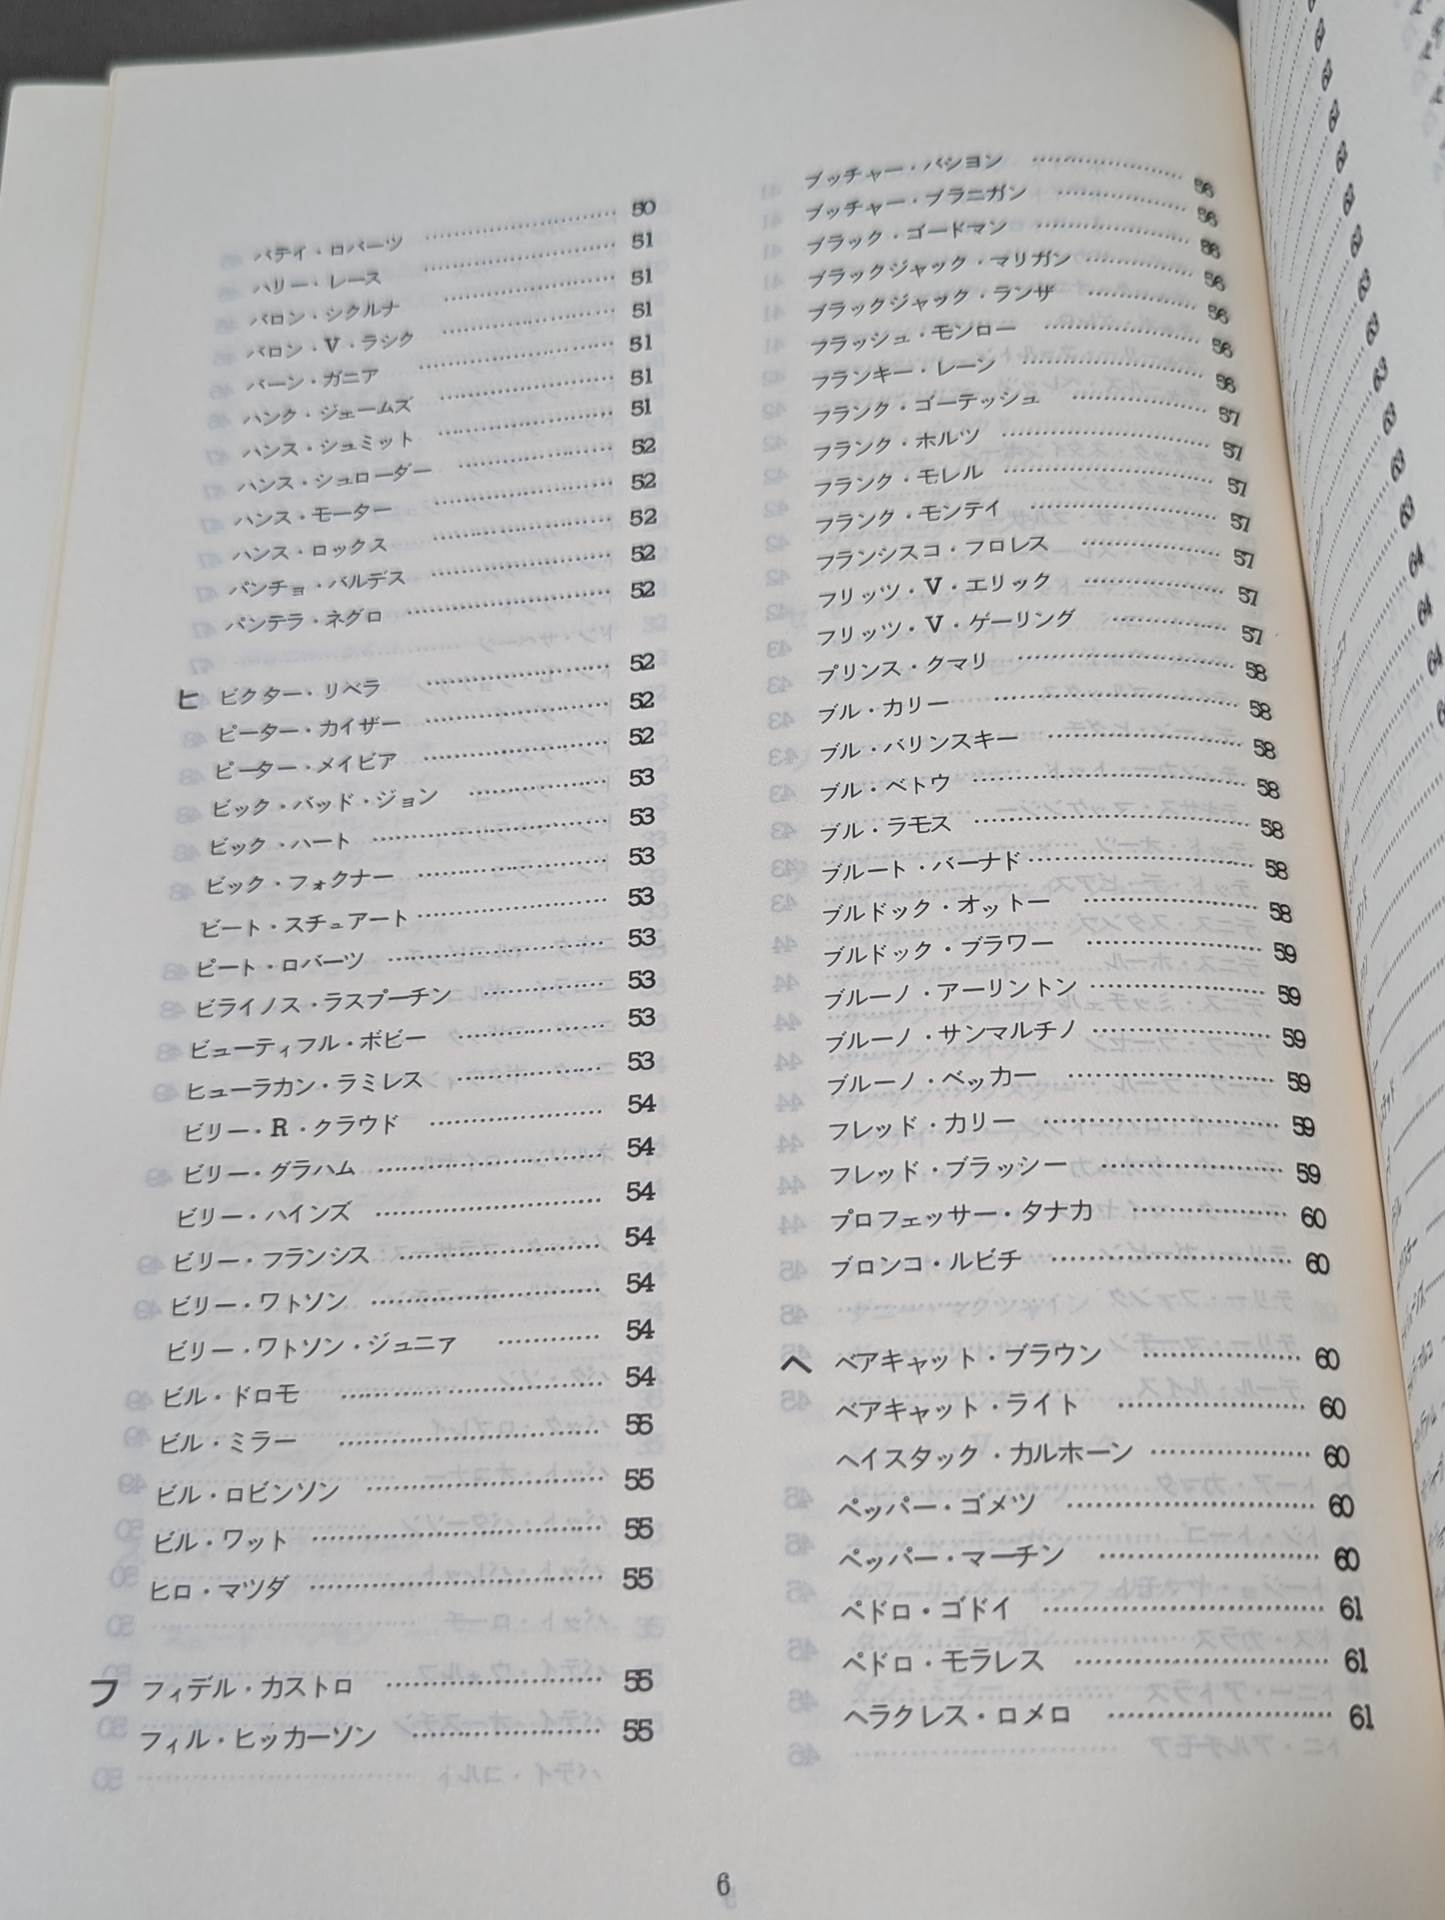 パティ・ロバーツ ………… 50
ハリー・レース ………… 51
バロン・シクルナ ………… 51
バロン・V・ラシク ………… 51
バーン・ガニア ………… 51
ハンク・ジェームズ ………… 51
ハンス・シュミット ………… 51
ハンス・シュローダー ………… 52
ハンス・モーター ………… 52
ハンス・ロックス ………… 52
パンチョ・バルデス ………… 52
パンテラ・ネグロ ………… 52
ヒ ビクター・リベラ ………… 52
ピーター・カイザー ………… 52
ピーター・メイビア ………… 52
ビック・バッド・ジョン ………… 53
ビック・ハート ………… 53
ビック・フォクナー ………… 53
ビート・スチュアート ………… 53
ピート・ロバーツ ………… 53
ビライノス・ラスプーチン ………… 53
ビューティフル・ボビー ………… 53
ヒューラカン・ラミレス ………… 53
ビリー・R・クラウド ………… 54
ビリー・グラハム ………… 54
ビリー・ハインズ ………… 54
ビリー・フランシス ………… 54
ビリー・ワトソン ………… 54
ビリー・ワトソン・ジュニア ………… 54
ビル・ドロモ ………… 54
ビル・ミラー ………… 55
ビル・ロビンソン ………… 55
ビル・ワット ………… 55
ヒロ・マツダ ………… 55
フ フィデル・カストロ ………… 55
フィル・ヒッカーソン ………… 55
ブッチャー・バション ………… 56
ブッチャー・ブラニガン ………… 56
ブラック・ゴードマン ………… 56
ブラックジャック・マリガン ………… 56
ブラックジャック・ランザ ………… 56
フラッシュ・モンロー ………… 56
フランキー・レーン ………… 56
フランク・ゴーテッシュ ………… 57
フランク・ホルツ ………… 57
フランク・モレル ………… 57
フランク・モンテイ ………… 57
フランシスコ・フロレス ………… 57
フリッツ・V・エリック ………… 57
フリッツ・V・ゲーリング ………… 57
プリンス・クマリ ………… 58
ブル・カリー ………… 58
ブル・バリンスキー ………… 58
ブル・ベトウ ………… 58
ブル・ラモス ………… 58
ブルート・バーナド ………… 58
ブルドック・オットー ………… 58
ブルドック・ブラワー ………… 59
ブルーノ・アーリントン ………… 59
ブルーノ・サンマルチノ ………… 59
ブルーノ・ベッカー ………… 59
フレッド・カリー ………… 59
フレッド・ブラッシー ………… 59
プロフェッサー・タナカ ………… 60
ブロンコ・ルビチ ………… 60
ヘ ベアキャット・ブラウン ………… 60
ベアキャット・ライト ………… 60
ヘイスタック・カルホーン ………… 60
ペッパー・ゴメツ ………… 60
ペッパー・マーチン ………… 60
ペドロ・ゴドイ ………… 61
ペドロ・モラレス ………… 61
ヘラクレス・ロメロ ………… 61
6